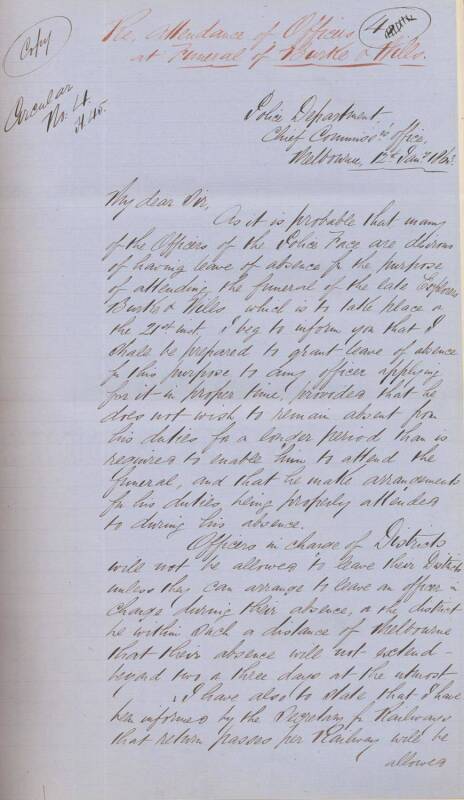 Copy
Re. Attendance of Officers
at Funeral of Burke & Wills.
4
Circular
No. 4.
A 45.
Police Department
Chief Commiss:rs office,
Melbourne, 12th Jany 1863.
My dear Sir,
As it is probable that many
of the Officers of the Police Force are desirous
of having leave of absence for the purpose
of attending the funeral of the late Explorers
Burke & Wills which is to take place on
the 21st inst, I beg to inform you that I
shall be prepared to grant leave of absence
for this purpose to any officer applying
for it in proper time, provided that he
does not wish to remain absent from
his duties for a longer period than is
required to enable him to attend the
funeral, and that he make arrangements
for his duties, being properly attended
to during his absence.
Officers in charge of Districts
will not be allowed to leave their Districts
unless they can arrange to leave an officer in
charge during their absence, or the district
be within such a distance of Melbourne
that their absence will not extend
beyond two or three days at the utmost
I have also to state that I have
been informed by the Secretary for Railways
that return passes per Railway will be
allowed